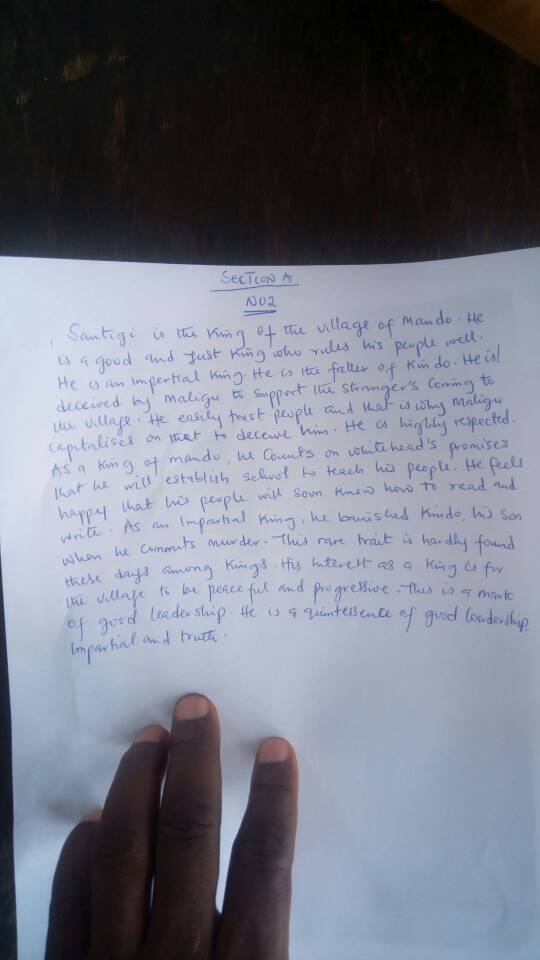 SECTION A
NO2
Santigi is the King of the village of Mando. He
is a good and Just King who rules his people well.
He is an impertial King. He is the father of Kindo. He is
deceived by Maligu to support the Stranger's Coming to
the village. He easily trust people and that is why Maligu
capitalises on that to deceive him. He is highly respected.
As a King of mando, he Counts on whitehead's promises
that he will establish school to teach his people. He feels
happy that his people will soon know how to read and
write. As an Impartial King, he banished Kindo, his son
when he commits murder. This rare trait is hardly found
these days among Kings. His Interest as a King is for
the village to be peaceful and progressive. This is a mark
of good leadership. He is a quintessence of good leardership,
Impartial and truth.